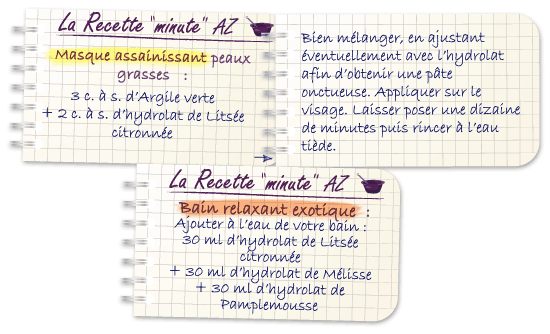 La Recette "minute" AZ
Masque assainissant peaux
grasses :
3 c. à s. d'Argile verte
+ 2 c. à s. d'hydrolat de Litsée
citronnée
Bien mélanger, en ajustant
éventuellement avec l'hydrolat
afin d'obtenir une pâte
onctueuse. Appliquer sur le
visage. Laisser poser une dizaine
de minutes puis rincer à l'eau
tiède.
La Recette "minute" AZ
Bain relaxant exotique :
Ajouter à l'eau de votre bain :
30 ml d'hydrolat de Litsée
citronnée
+ 30 ml d'hydrolat de Mélisse
+ 30 ml d'hydrolat de
Pamplemousse